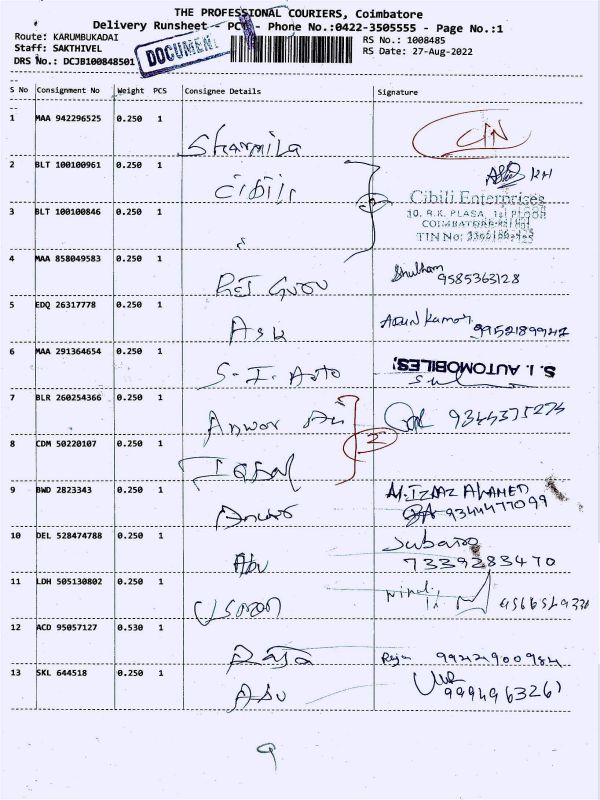 THE PROFESSIONAL COURIERS, Coimbatore
Delivery Runsheet - PCT - Phone No.:0422-3505555 - Page No.:1
Route: KARUMBUKADAI
RS No.: 1008485
Staff: SAKTHIVEL
RS Date: 27-Aug-2022
DRS No.: DCJB100848501
DOCUMENT
S No Consignment No Weight PCS Consignee Details Signature
1 MAA 942296525 0.250 1 Sharmila
2 BLT 100100961 0.250 1 Cibili
Cibili Enterprises
3 BLT 100100846 0.250 1
10, R.K. PLASA, 1st FLOOR
TIN No:
4 MAA 858049583 0.250 1 Shubham 9585363128
5 EDQ 26317778 0.250 1 Ask Arun Kumar 9952189942
6 MAA 291364654 0.250 1 S.I. Auto S. I. AUTOMOBILES
7 BLR 260254366 0.250 1 Anwar Ali 9344375274
8 CDM 50220107 0.250 1 Iqbal 2
9 BWD 2823343 0.250 1 M. IZAAZ AHAMED
9344477099
10 DEL 528474788 0.250 1 Abu
7339283470
11 LDH 505130802 0.250 1 Usman
12 ACD 95057127 0.530 1 Raja Raja 9942900984
13 SKL 644518 0.250 1 Abu 9994963261
9